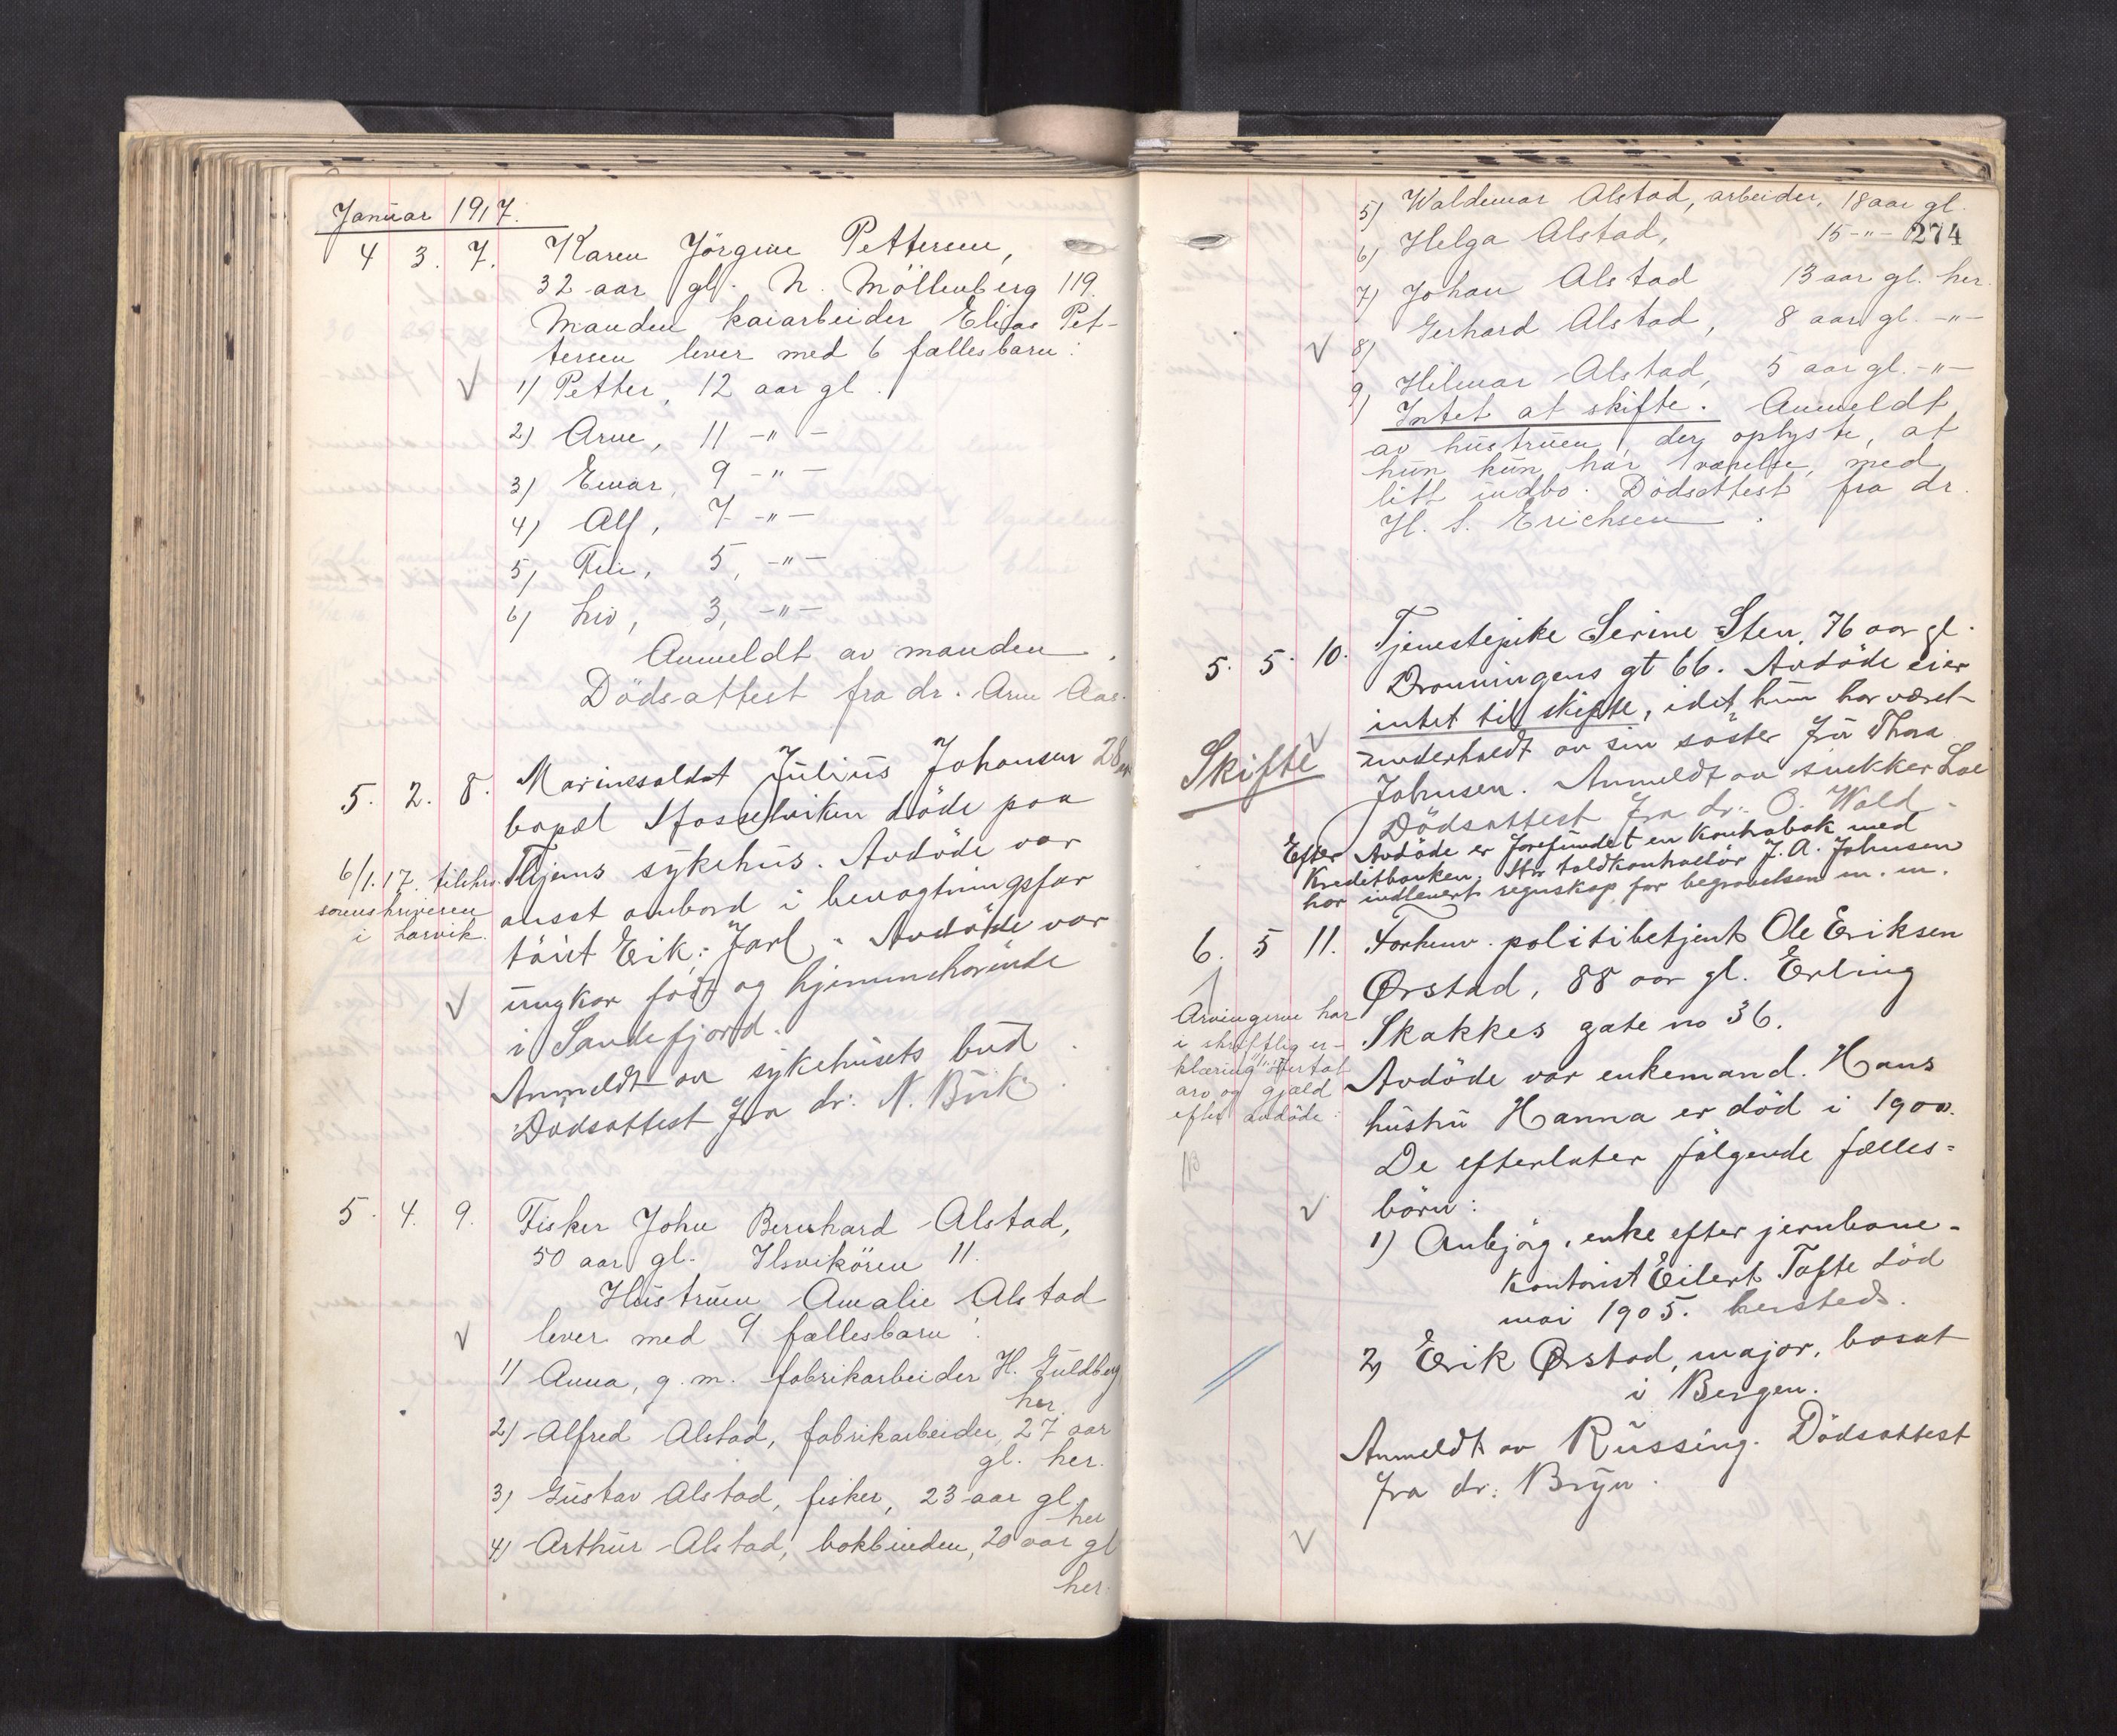 Januar 1917.
4 3. 7. Karen Jörgine Pettersen,
32 aar gl. N. Möllenberg 119.
Manden kaiarbeider Elias Pet-
tersen lever med 6 fællesbarn:
1) Petter, 12 aar gl.
2) Arne, 11 -"-
3) Einar, 9 -"-
4) Alf, 7 -"-
5) Finn, 5, -"-
6) Liv, 3, -"-
Anmeldt av manden.
Dödsattest fra dr. Arne Aas.
5. 2. 8. Marinesoldat Julius Johansen 28 aar
bopæl döde paa
6/1.17. tilskr. Thjems sykehus. Avdöde var
sorenskriveren ansat ombord i bevogtningsfar
i Larvik. töiet Erik Jarl. Avdöde var
ungkar födt og hjemmehörende
i Sandefjord.
Anmeldt av sykehusets bud.
Dödsattest fra dr. N. Bück.
5. 4. 9. Fisker John Bernhard Alstad,
50 aar gl. Ilsvikören 11.
Hustruen Amalie Alstad
lever med 9 fællesbarn:
1) Anna, g. m. fabrikarbeider H. Guldberg
her.
2) Alfred Alstad, fabrikarbeider, 27 aar
gl. her.
3) Gustav Alstad, fisker, 23 aar gl.
her
4) Arthur Alstad, bokbinder, 20 aar gl
her.
5) Waldemar Alstad, arbeider, 18 aar gl.
6) Helga Alstad, 15 -"- 274
7) Johan Alstad 13 aar gl. her.
8) Gerhard Alstad, 8 aar gl. -"-
9) Hilmar Alstad, 5 aar gl. -"-
Intet at skifte. Anmeldt
av hustruen, der oplyste, at
hun kun har 1 værelse, med
litt indbo. Dödsattest fra dr.
H. S. Erichsen.
5. 5. 10. Tjenestepike Serine Sten, 76 aar gl.
Dronningens gt 66. Avdöde eier
intet til skifte, idet hun har været
Skifte underholdt av sin söster fru Thora
Johnsen. Anmeldt av snekker Loe
Dödsattest fra dr. O. Wold.
Efter Avdöde er forefundet en kontrabok med
Kreditbanken. Hr. toldkontrollör J. A. Johnsen
har indlevert regnskap for begravelsen m. m.
6. 5 11. Forhenv. politibetjent Ole Eriksen
Ørstad, 88 aar gl. Erling
Skakkes gate no 36.
Arvingerne har
i skriftlig er-
klæring overtat
arv og gjæld
efter avdöde.
Avdöde var enkemand. Hans
hustru Hanna er död i 1900.
De efterlater fölgende fælles-
börn:
1) Anbjörg, enke efter jernbane-
kontorist Eilert Tofte död
mai 1905. hersteds.
2) Erik Ørstad, major, bosat
i Bergen.
Anmeldt av Rüssing. Dödsattest
fra dr. Bryn.